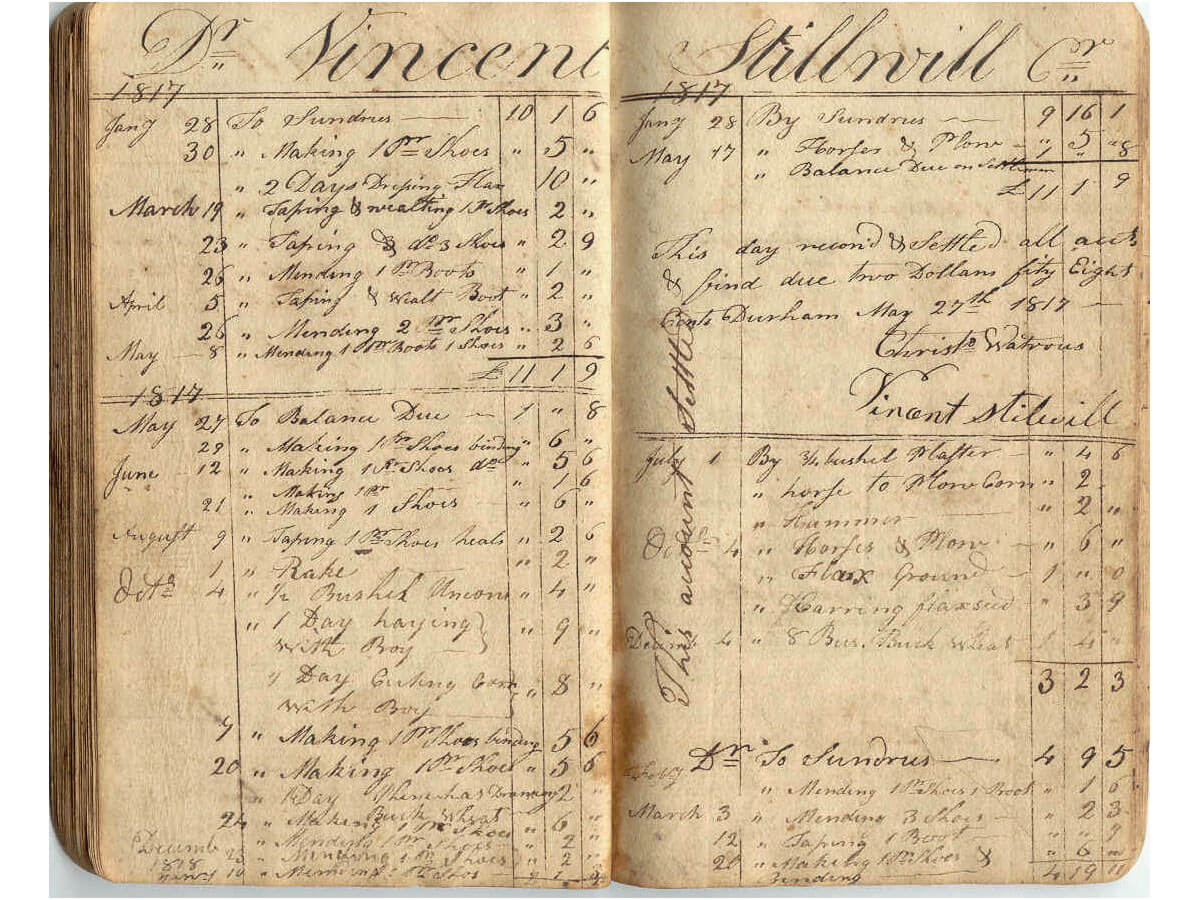 Dr Vincent
1817
Jany 28 To Sundrus 10 1 6
30 " Making 1 Pr Shoes " 5 "
" 2 Days Dresing Flax 10 "
March 19 " Taping & wealting 1 Pr Shoes 2 "
23 " Taping & do 3 Shoes " 2 9
26 " Mending 1 Pr Boots " 1 "
April 5 " Taping & Wealt Boot " 2 "
26 " Mending 2 Pr Shoes " 3 "
May 8 " Mending 1 Pr Boots 1 Shoes " 2 6
£ 11 1 9
1817
May 27 To Balance Due 1 " 8
29 " Making 1 Pr Shoes binding " 6 "
June 12 " Making 1 Pr Shoes do " 5 6
" Making 1 Pr " 1 6
21 " Making 1 Shoes " 6 "
August 9 " Taping 1 Pr Shoes heals " 2 6
1 " Rake " 2 "
Octr 4 " 1/2 Bushel " 4 "
" 1 Day haying
with Boy " 9 "
" Day Cuting Corn
with Boy " 8 "
7 " Making 1 Pr Shoes binding 5 6
20 " Making 1 Pr Shoes " 5 6
" 1 Day 2 "
Buck Wheat
24 " Making 1 Pr Shoes " 6 "
" Mending 1 Pr Shoes " 2 "
Decemb 25 " Mending 1 Pr Shoes " 2 "
1818
10 " Mending 1 Pr Shoes
Stillwill Cr
1817
Jany 28 By Sundrus 9 16 1
May 17 " Horses & Plow " 5 "
" Balance Due on Settlemen 1 " 8
£ 11 1 9
This day recond & Settled all accts
& find due two Dollars fifty Eight
Cents Durham May 27th 1817
Christr Watrous
Vincent Stilwill
July 1 By 3/4 bushel Plaster " 4 6
" horse to Plow Corn " 2 "
" Hummer " 2 "
Octr 4 " Horses & Plow " 6 "
" Flax Ground 1 " 0
" Harring flaxseed " 3 9
Decm 4 " 8 Bus. Buck wheat 1 4 "
3 2 3
This account Settled
Dr To Sundrus 4 9 5
" Mending 1 Pr Shoes 1 Boot " 1 6
March 3 " Mending 3 Shoes " 2 3
12 " Taping 1 Boot " " 9
21 " Making 1 Pr Shoes & " 6 "
Binding 4 19 11